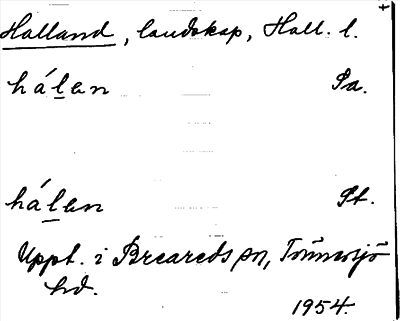 Halland, landskap, Hall. l.
hálan Sa.
hálan St.
Uppt. i Breareds sn, Tönnersjö
hd.
1954.